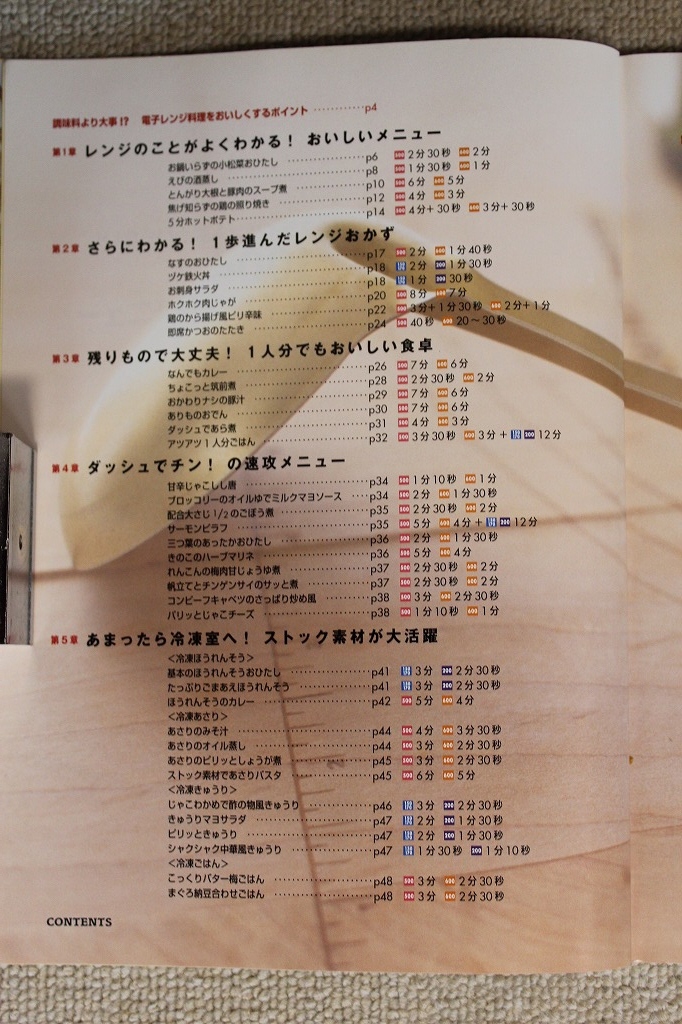 調味料より大事!? 電子レンジ料理をおいしくするポイント …………p4
第1章 レンジのことがよくわかる! おいしいメニュー
お鍋いらずの小松菜おひたし p6 500 2分30秒 600 2分
えびの酒蒸し p8 500 1分30秒 600 1分
とんがり大根と豚肉のスープ煮 p10 500 6分 600 5分
焦げ知らずの鶏の照り焼き p12 500 4分 600 3分
5分ホットポテト p14 500 4分+30秒 600 3分+30秒
第2章 さらにわかる! 1歩進んだレンジおかず
なすのおひたし p17 500 2分 600 1分40秒
ヅケ鉄火丼 p18 2分 200 1分30秒
お刺身サラダ p18 1分 200 30秒
ホクホク肉じゃが p20 500 8分 600 7分
鶏のから揚げ風ピリ辛味 p22 500 3分+1分30秒 600 2分+1分
即席かつおのたたき p24 500 40秒 600 20〜30秒
第3章 残りもので大丈夫! 1人分でもおいしい食卓
なんでもカレー p26 500 7分 600 6分
ちょこっと筑前煮 p28 500 2分30秒 600 2分
おかわりナシの豚汁 p29 500 7分 600 6分
ありものおでん p30 500 7分 600 6分
ダッシュであら煮 p31 500 4分 600 3分
アツアツ1人分ごはん p32 500 3分30秒 600 3分+ 200 12分
第4章 ダッシュでチン! の速攻メニュー
甘辛じゃこしし唐 p34 500 1分10秒 600 1分
ブロッコリーのオイルゆでミルクマヨソース p34 500 2分 600 1分30秒
配合大さじ1/2のごぼう煮 p35 500 2分30秒 600 2分
サーモンピラフ p35 500 5分 600 4分+ 200 12分
三つ葉のあったかおひたし p36 500 2分 600 1分30秒
きのこのハーブマリネ p36 500 5分 600 4分
れんこんの梅肉甘じょうゆ煮 p37 500 2分30秒 600 2分
帆立てとチンゲンサイのサッと煮 p37 500 2分30秒 600 2分
コンビーフキャベツのさっぱり炒め風 p38 500 3分 600 2分30秒
パリッとじゃこチーズ p38 500 1分10秒 600 1分
第5章 あまったら冷凍室へ! ストック素材が大活躍
<冷凍ほうれんそう>
基本のほうれんそうおひたし p41 3分 200 2分30秒
たっぷりごまあえほうれんそう p41 3分 200 2分30秒
ほうれんそうのカレー p42 500 5分 600 4分
<冷凍あさり>
あさりのみそ汁 p44 500 4分 600 3分30秒
あさりのオイル蒸し p44 500 3分 600 2分30秒
あさりのピリッとしょうが煮 p45 500 3分 600 2分30秒
ストック素材であさりパスタ p45 500 6分 600 5分
<冷凍きゅうり>
じゃこわかめで酢の物風きゅうり p46 3分 200 2分30秒
きゅうりマヨサラダ p47 2分 200 1分30秒
ピリッときゅうり p47 2分 200 1分30秒
シャクシャク中華風きゅうり p47 1分30秒 200 1分10秒
<冷凍ごはん>
こっくりバター梅ごはん p48 500 3分 600 2分30秒
まぐろ納豆合わせごはん p48 500 3分 600 2分30秒
CONTENTS